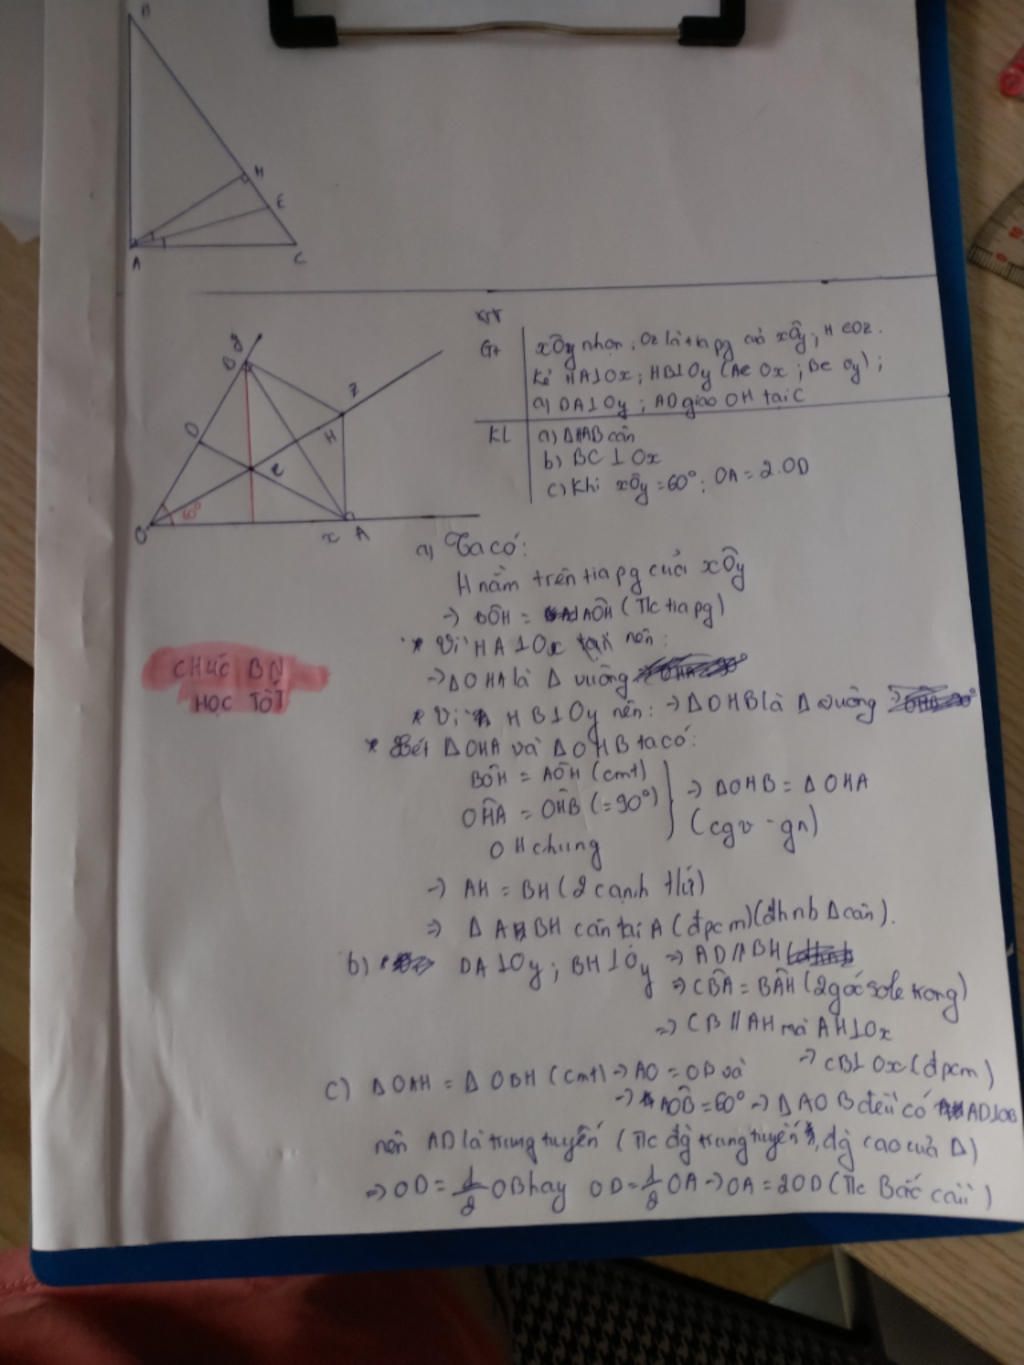 B
H
E
A
C
y
B
z
D
H
C
60°
O
x A
GT
xÔy nhọn; Oz là tia pg của xÔy; H ∈ Oz.
Kẻ HA⊥Ox; HB⊥Oy (A∈ Ox; B∈ Oy);
a) DA⊥Oy; AD giao OH tại C
KL
a) ΔHAB cân
b) BC ⊥ Ox
c) Khi xÔy = 60°: OA = 2.OD
a) Ta có:
H nằm trên tia pg của xÔy
→ BÔH = AÔH (T/c tia pg)
* Vì HA⊥Ox nên:
→ΔOHA là Δ vuông
* Vì HB⊥Oy nên: →ΔOHB là Δ vuông
* Xét ΔOHA và ΔOHB ta có:
BÔH = AÔH (cmt)
OĤA = OĤB (=90°)
OH chung
→ ΔOHB = ΔOHA
(cgv - gn)
→ AH = BH (2 cạnh t/ứ)
⇒ Δ ABH cân tại A (đpcm)(dhnb Δcân).
b) DA⊥Oy; BH⊥Oy ⇒ AD//BH
⇒ CB̂A = BÂH (2góc sole trong)
⇒ CB//AH mà AH⊥Ox
→ CB⊥Ox (đpcm)
c) ΔOAH = ΔOBH (cmt) → AO = OB và
→ AÔB = 60° → ΔAOB đều có AD⊥OB
nên AD là trung tuyến (T/c đg trung tuyến, đg cao của Δ)
⇒ OD = 1/2 OB hay OD = 1/2 OA → OA = 2OD (T/c Bắc cầu)
CHÚC BN
HỌC TỐT